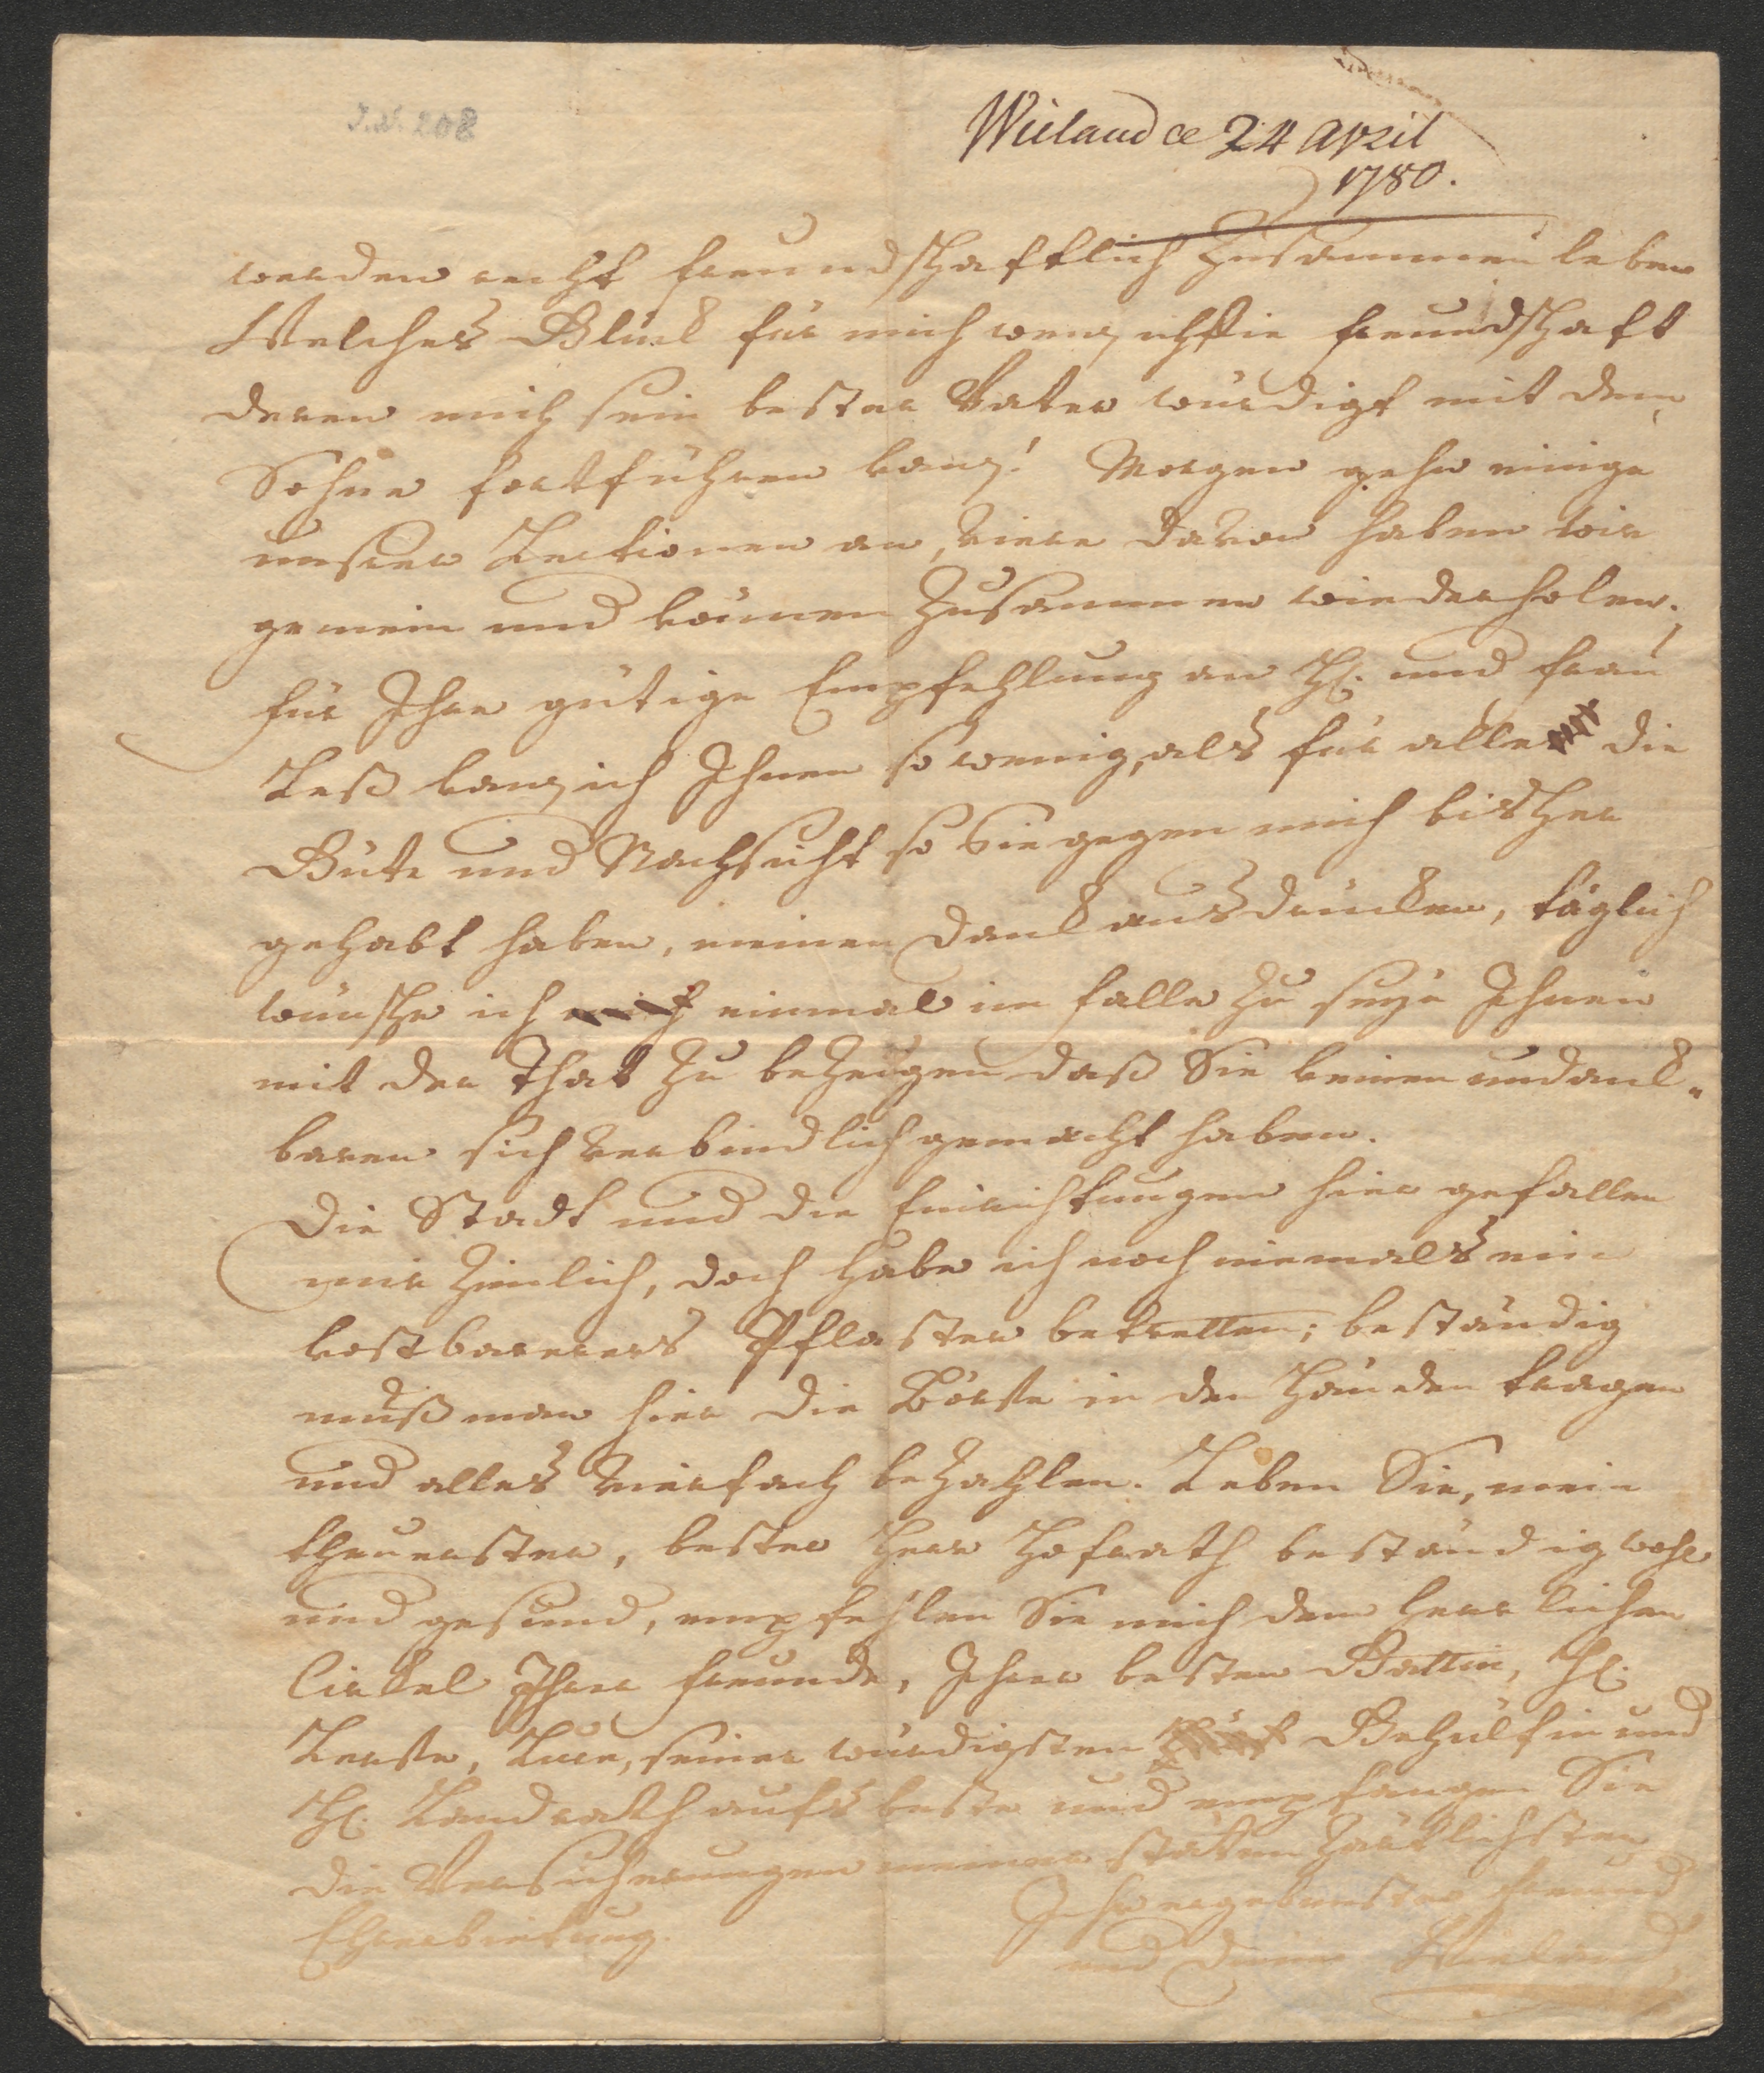 J.N. 208
Wieland ce 24 April
1780.
werden recht freundschaftlich zusammen leben
Welches Glück für mich wenn ich die freundschaft
deren mich sein bester Vater würdigt mit dem
Sohne fortführen kann! Morgen gehn einige
unsrer Lectionen an, viere davon haben wir
gemein und können zusammen wiederholen.
für Ihre gütige Empfehlung an H. und frau
Leß kann ich Ihnen so wenig, als für alle die
Güte und Nachsicht so Sie gegen mich bisher
gehabt haben, meinen Dank ausdrücken, täglich
wünsche ich mich einmal im falle zu seyn Ihnen
mit der That zu bezeugen daß Sie keinen undank-
baren sich verbindlich gemacht haben.
Die Stadt und die Einrichtungen hier gefallen
mir zimlich, doch habe ich noch niemals ein
kostbareres Pflaster betretten; beständig
muß man hier die Börse in den Händen tragen
und alles vierfach bezahlen. Leben Sie, mein
theuerster, bester Herr Hofrath beständig wohl
und gesund, empfehlen Sie mich dem herrlichen
Cirkel Ihrer freunde, Ihrer besten Gattin, H.
Lerse, Luce, seiner würdigsten Gehülfin und
H. Landrath aufs beste und empfangen Sie
die Versicherungen meiner stäten zärtlichsten
Ehrerbietung.
Ihr ergebenster freund
und Diener Wieland